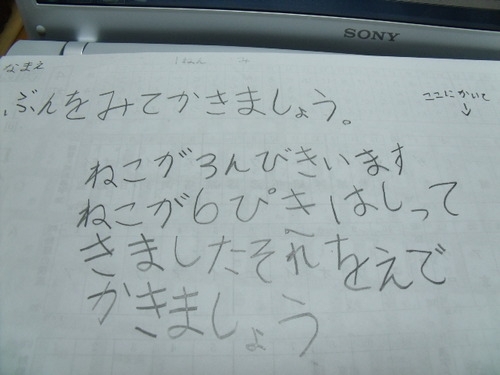 SONY
なまえ
ぶんをみてかきましょう。
ここにかいて
↓
ねこが3んびきいます
ねこが6ぴきはしって
きましたそれをえで
かきましょう